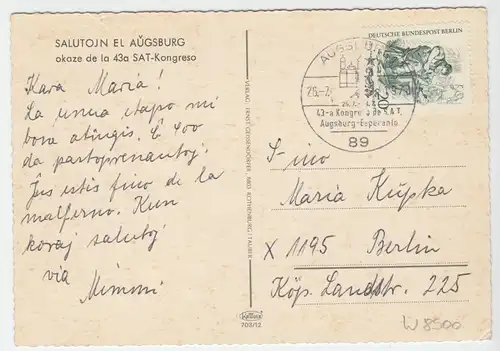 SALUTOJN EL AŬGSBURG
okaze de la 43a SAT-Kongreso
Kara Maria!
La unua etapo mi
bone atingis. Ĉ 400
da partoprenantoj.
Ĵus estis fino de la
malfermo. Kun
koraj salutoj
via
Mimmi
VERLAG ERNST GEISSENDÖRFER, 8803 ROTHENBURG/TAUBER
703/12
DEUTSCHE BUNDESPOST BERLIN
AUGSBURG
43-a Kongreso de S.A.T.
Augsburg-Esperanto
89
F-ino
Maria Kupka
X 1195 Berlin
Köp. Landstr. 225
W 8500